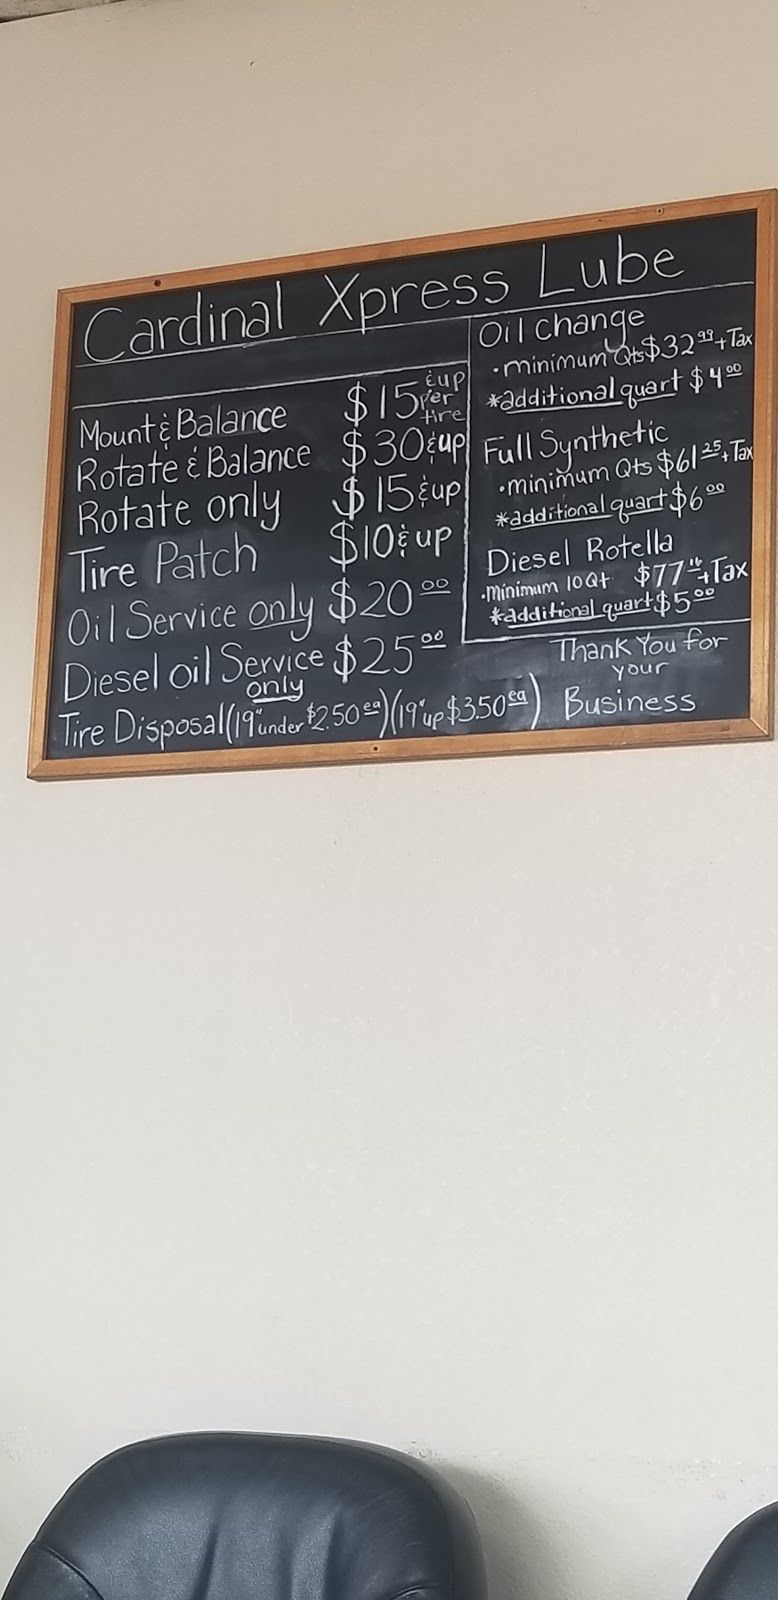 Cardinal Xpress Lube
Mount & Balance $15 & up per tire
Rotate & Balance $30 & up
Rotate only $15 & up
Tire Patch $10 & up
Oil Service only $20 00
Diesel oil Service only $25 00
Tire Disposal (19" under $2.50 ea) (19" up $3.50 ea)
Oil change
• minimum Qts $32 99 + Tax
*additional quart $4 00
Full Synthetic
• minimum Qts $61 25 + Tax
*additional quart $6 00
Diesel Rotella
• minimum 10 Qt $77 + Tax
*additional quart $5 00
Thank You for
your
Business